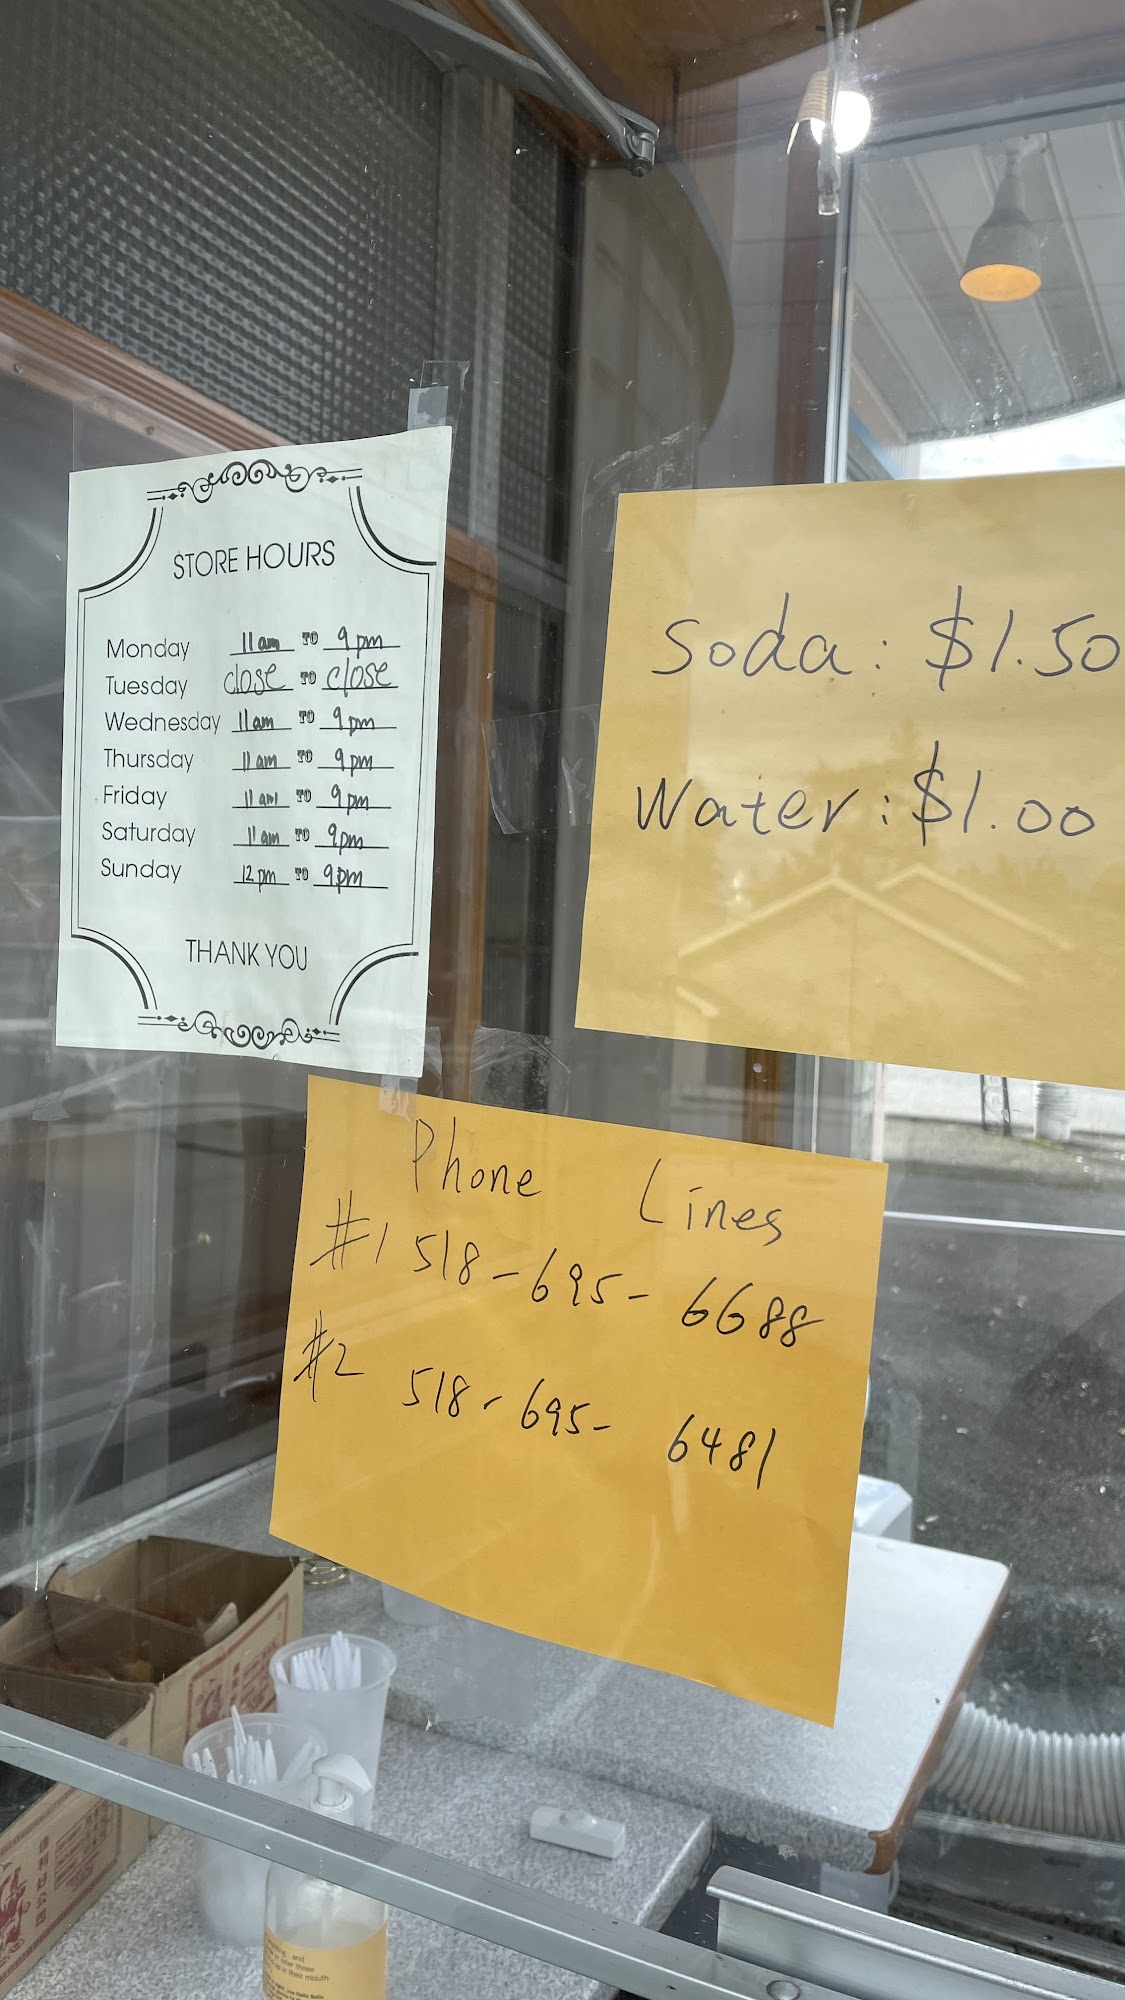 STORE HOURS
Monday 11am TO 9pm
Tuesday close TO close
Wednesday 11am TO 9pm
Thursday 11am TO 9pm
Friday 11am TO 9pm
Saturday 11am TO 9pm
Sunday 12pm TO 9pm
THANK YOU
Soda: $1.50
Water: $1.00
Phone Lines
#1 518-695-6688
#2 518-695-6481
and
in their mouth